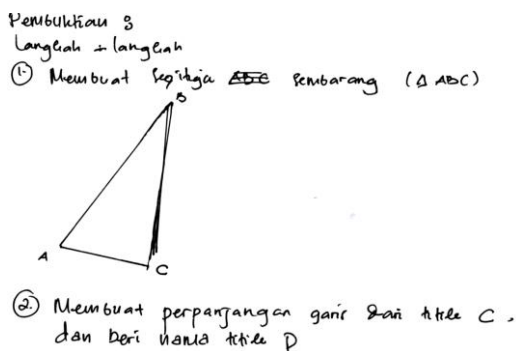 Pembuktian :
Langkah - langkah
① Membuat segitiga ABC sembarang (△ ABC)
B
A
C
② Membuat perpanjangan garis dari titik C,
dan beri nama titik D